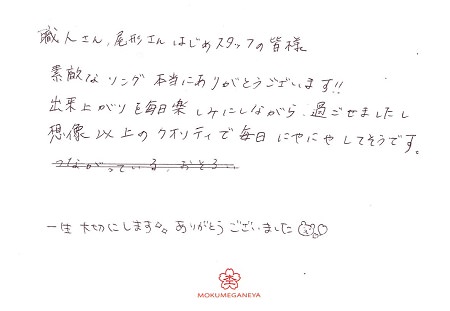 職人さん、尾形さんはじめスタッフの皆様
素敵なリング本当にありがとうございます!!
出来上がりを毎日楽しみにしながら、過ごせましたし
想像以上のクオリティで毎日にやにやしてそうです。
つながっている、おそろい
一生大切にします ありがとうございました
MOKUMEGANEYA